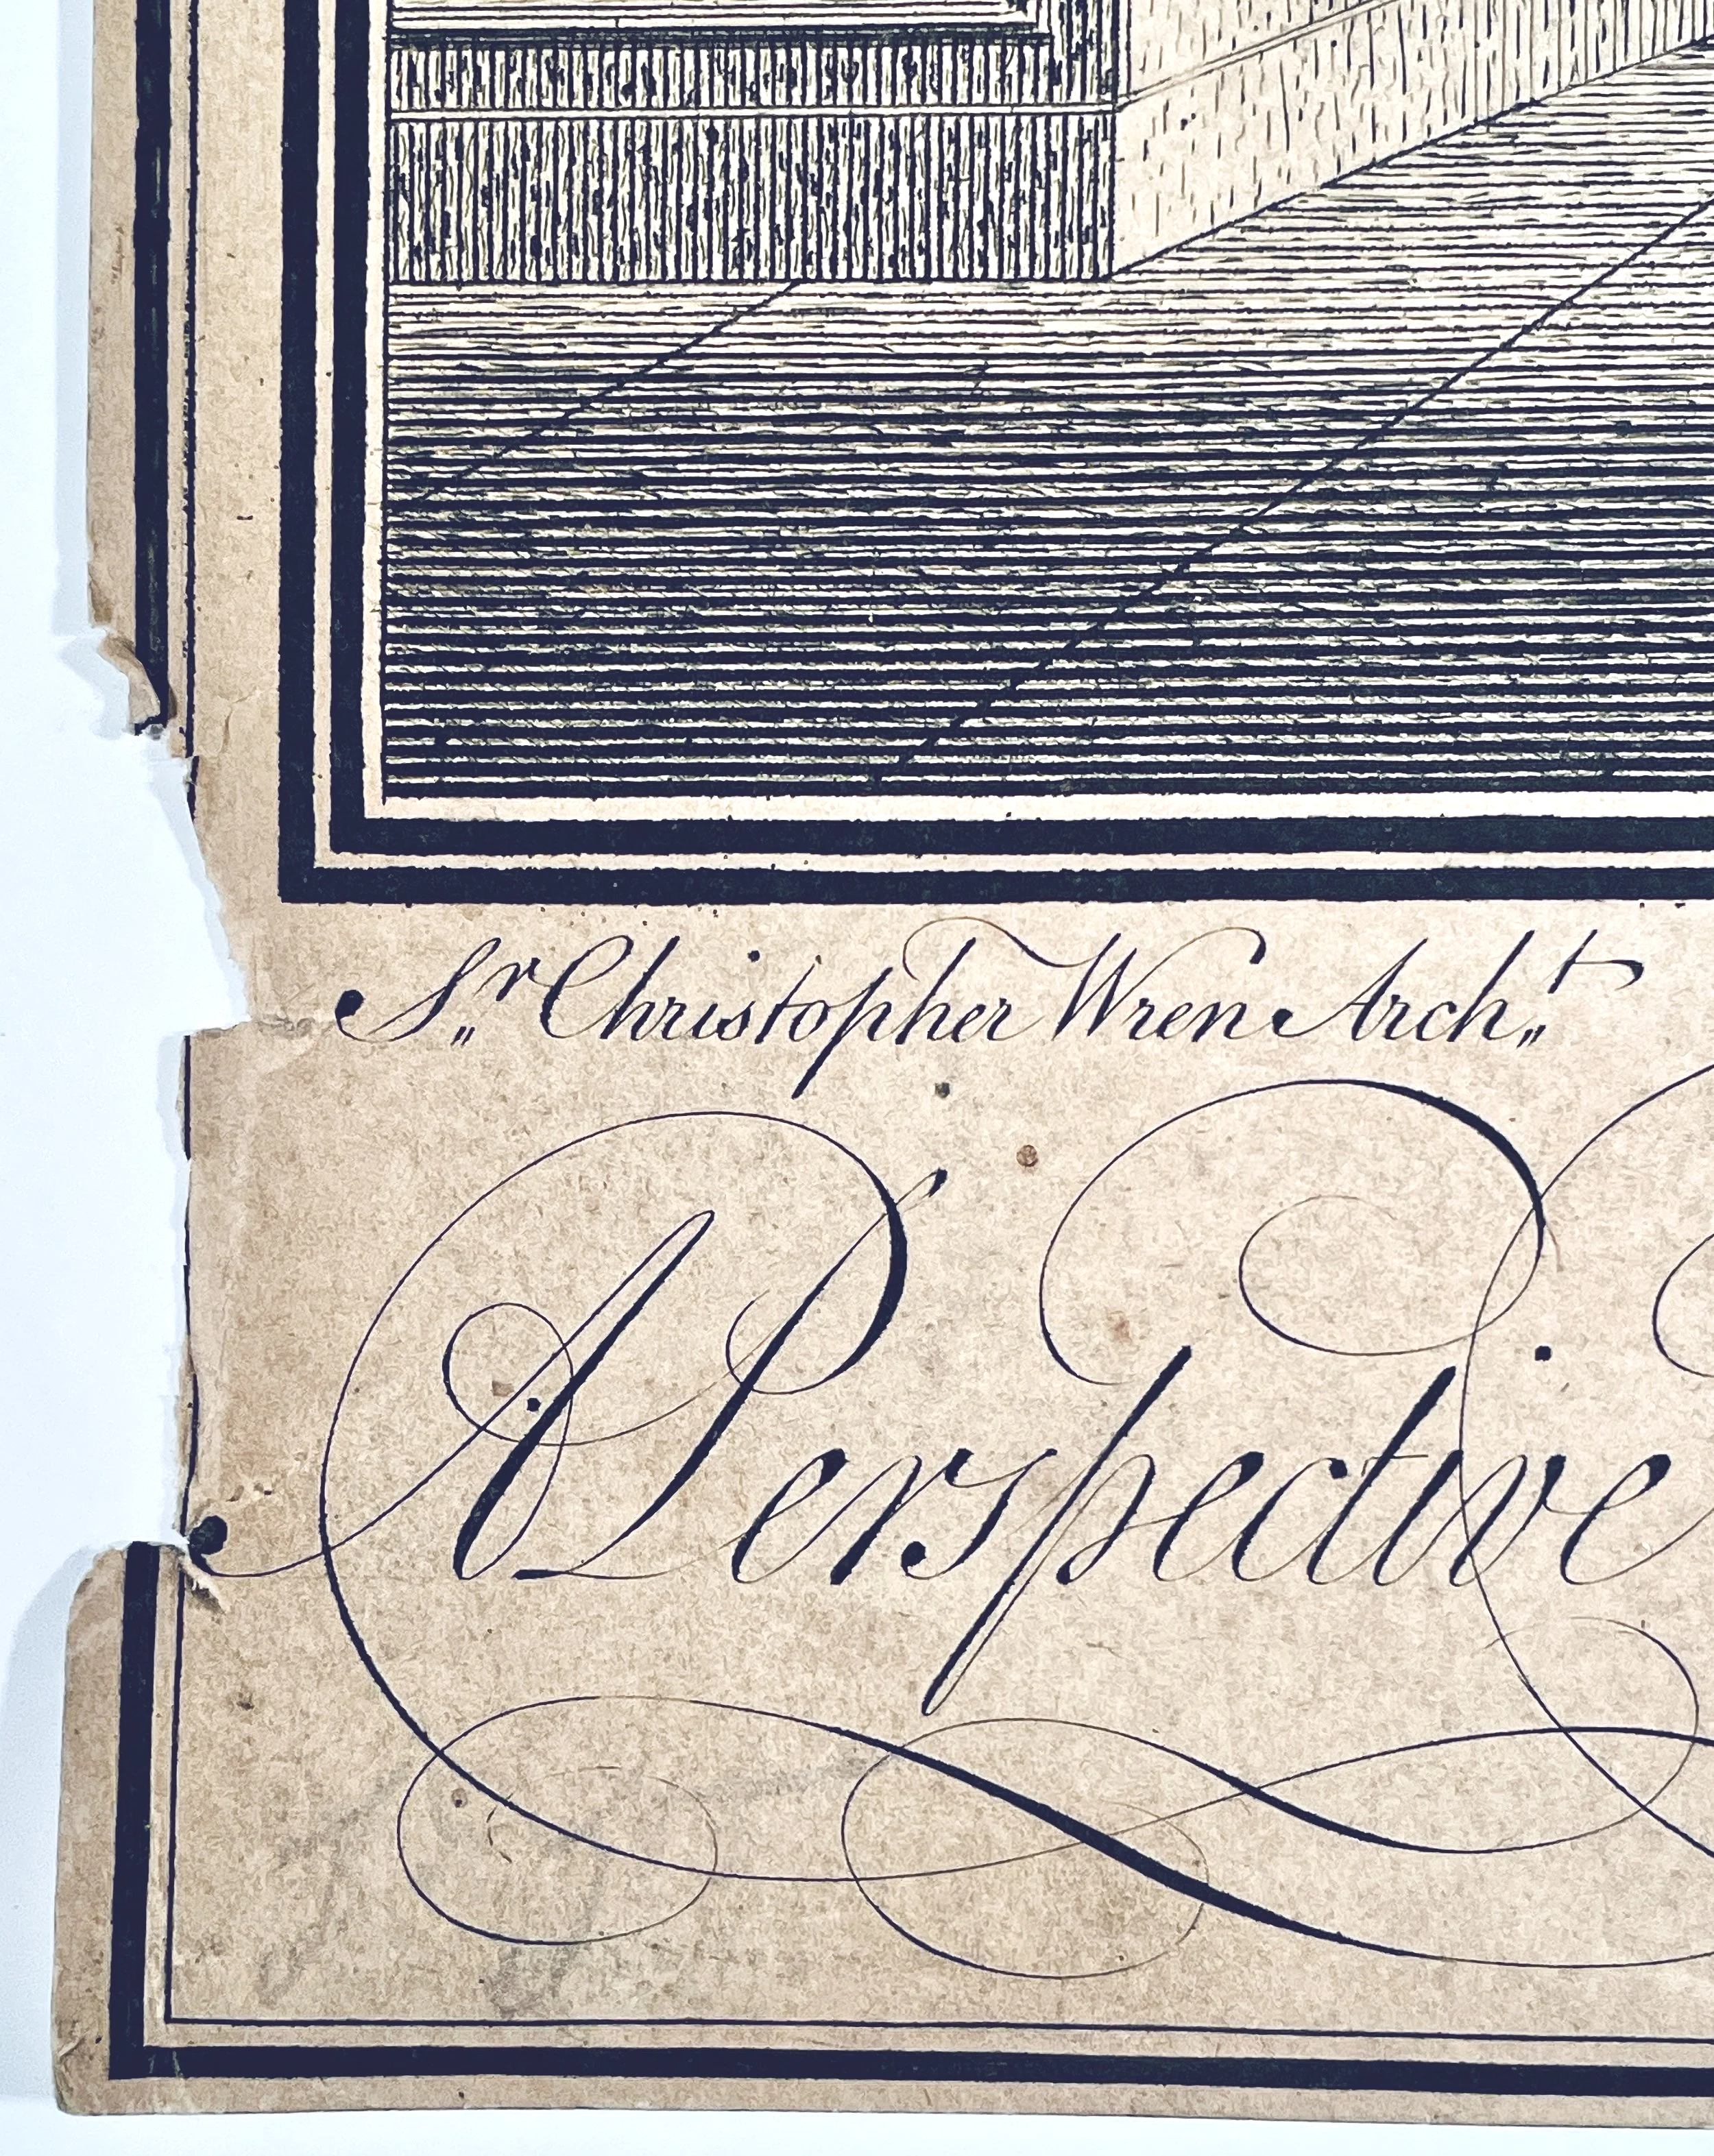 Sr Christopher Wren Archt
A Perspective